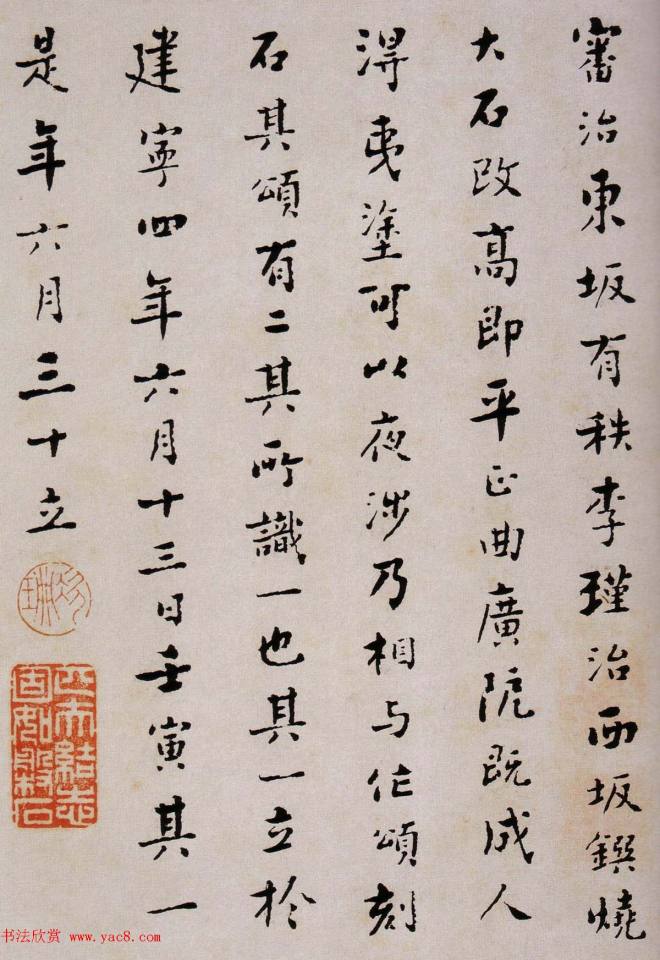 審治東坂有秩李瑾治西坂鐉燒
大石改高即平正曲廣阸既成人
得夷塗可以夜涉乃相与作頌刻
石其頌有二其所識一也其一立於
建寧四年六月十三日壬寅其一
是年六月三十立
书法欣赏 www.yac8.com